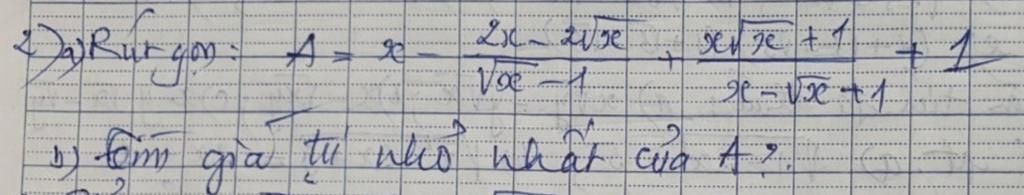 2) a) Rút gọn: A = x - (2x - 2√x)/(√x - 1) + (x√x + 1)/(x - √x + 1) + 1
b) Tìm giá trị nhỏ nhất của A?.